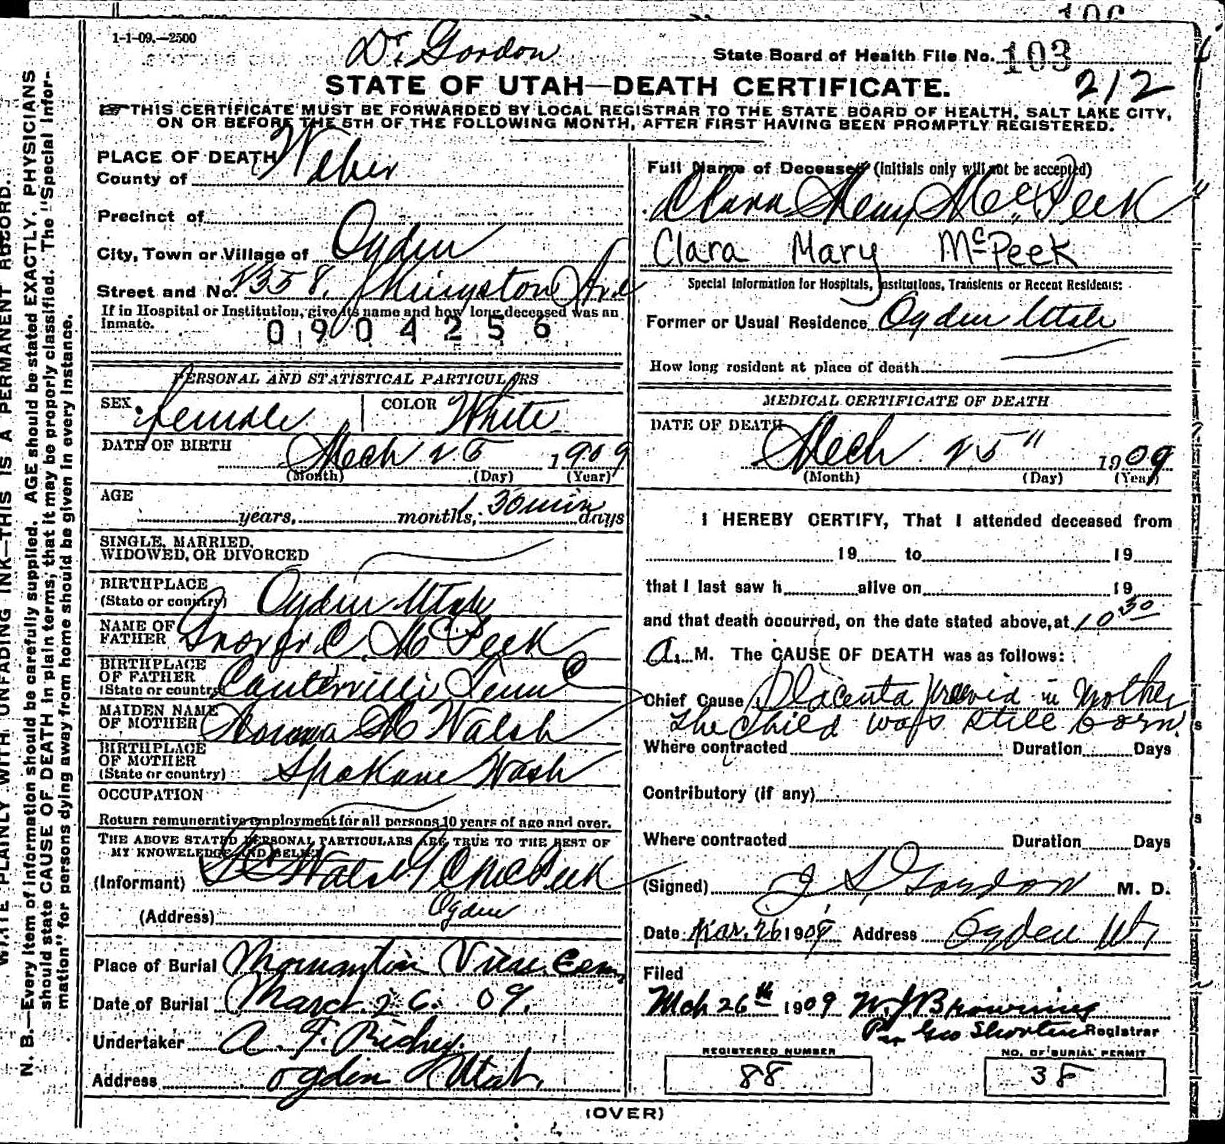 106
1-1-09.—2500
Dr. Gordon
State Board of Health File No. 103
STATE OF UTAH—DEATH CERTIFICATE.
212
THIS CERTIFICATE MUST BE FORWARDED BY LOCAL REGISTRAR TO THE STATE BOARD OF HEALTH, SALT LAKE CITY,
ON OR BEFORE THE 5TH OF THE FOLLOWING MONTH, AFTER FIRST HAVING BEEN PROMPTLY REGISTERED.
PLACE OF DEATH
County of Weber
Precinct of
City, Town or Village of Ogden
Street and No. 2358. Ave
If in Hospital or Institution, give its name and how long deceased was an
Inmate.
0904256
PERSONAL AND STATISTICAL PARTICULARS
SEX female COLOR White
DATE OF BIRTH Mch 25 1909
(Month) (Day) (Year)
AGE
years, months, 30 min days
SINGLE, MARRIED,
WIDOWED, OR DIVORCED
BIRTHPLACE
(State or country) Ogden Utah
NAME OF
FATHER C. McPeek
BIRTHPLACE
OF FATHER
(State or country) Tenn
MAIDEN NAME
OF MOTHER M Walsh
BIRTHPLACE
OF MOTHER
(State or country) Spokane Wash
OCCUPATION
Return remunerative employment for all persons 10 years of age and over.
THE ABOVE STATED PERSONAL PARTICULARS ARE TRUE TO THE BEST OF
MY KNOWLEDGE AND BELIEF
(Informant) McPeek
(Address) Ogden
Place of Burial Mountain View Cem,
Date of Burial March 26. 09.
Undertaker A. F.
Address Ogden Utah.
Full Name of Deceased (Initials only will not be accepted)
Clara Mary McPeek
Clara Mary McPeek
Special Information for Hospitals, Institutions, Transients or Recent Residents:
Former or Usual Residence Ogden Utah
How long resident at place of death
MEDICAL CERTIFICATE OF DEATH
DATE OF DEATH Mch 25" 1909
(Month) (Day) (Year)
I HEREBY CERTIFY, That I attended deceased from
19 to 19
that I last saw h alive on 19
and that death occurred, on the date stated above, at 10 30
A. M. The CAUSE OF DEATH was as follows:
Chief Cause Placenta in Mother
The child was still born.
Where contracted Duration Days
Contributory (if any)
Where contracted Duration Days
(Signed) J S Gordon M. D.
Date Mar. 26 1909 Address Ogden Ut,
Filed
Mch 26th 1909 W J Browning
Per Geo Shorten Registrar
REGISTERED NUMBER
88
NO. OF BURIAL PERMIT
38
(OVER)
WRITE PLAINLY WITH UNFADING INK—THIS IS A PERMANENT RECORD.
N. B.—Every item of information should be carefully supplied. AGE should be stated EXACTLY. PHYSICIANS
should state CAUSE OF DEATH in plain terms, that it may be properly classified. The "Special Infor-
mation" for persons dying away from home should be given in every instance.